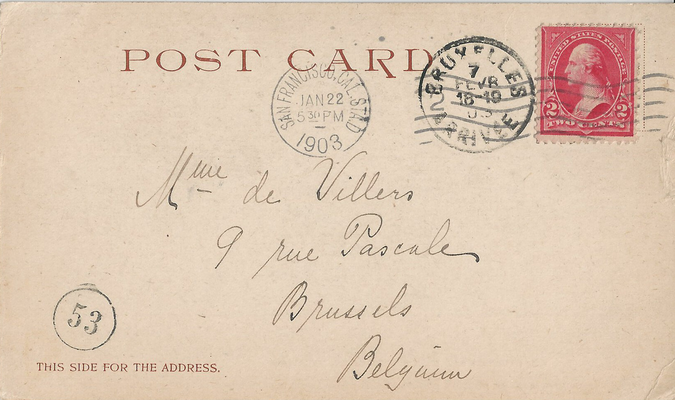 POST CARD
SAN FRANCISCO, CAL. STA.D
JAN 22
5 30 PM
1903
BRUXELLES
7
FEVR
18-19
03
ARRIVEE
UNITED STATES POSTAGE
2 2
TWO CENTS
Mme de Villers
9 rue Pascale
Brussels
Belgium
53
THIS SIDE FOR THE ADDRESS.